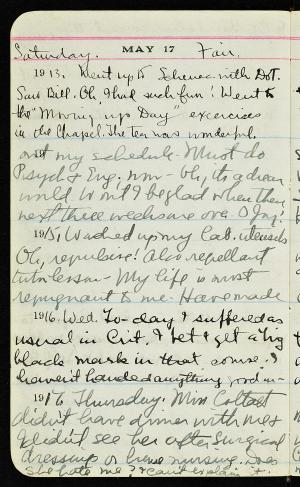 Saturday. MAY 17 Fair.
1913. Went up to Schenec. with Dot.
Saw Bill. Oh, I had such fun! Went to
the "Moving up Day" excercises
in the Chapel. The tea was wonderful.
out my schedule. Must do
Psych & Eng. now - Oh, it's a drear
world. Won't I be glad when these
next three weeks are over. O Joy!
1915, Washed up my Lab. utensils
Oh, repulsive! Also repellant
tutor lesson - My life is most
repugnant to me. Have made
1916. Wed. To-day I suffered as
usual in Crit. I bet I get a big
black mark in that course. I
haven't handed anything good in -
1917 Thursday. Miss
didn't have dinner with me &
I didn't see her after Surgical
dressing or home nursing. Does
she hate me? I can't explain it.